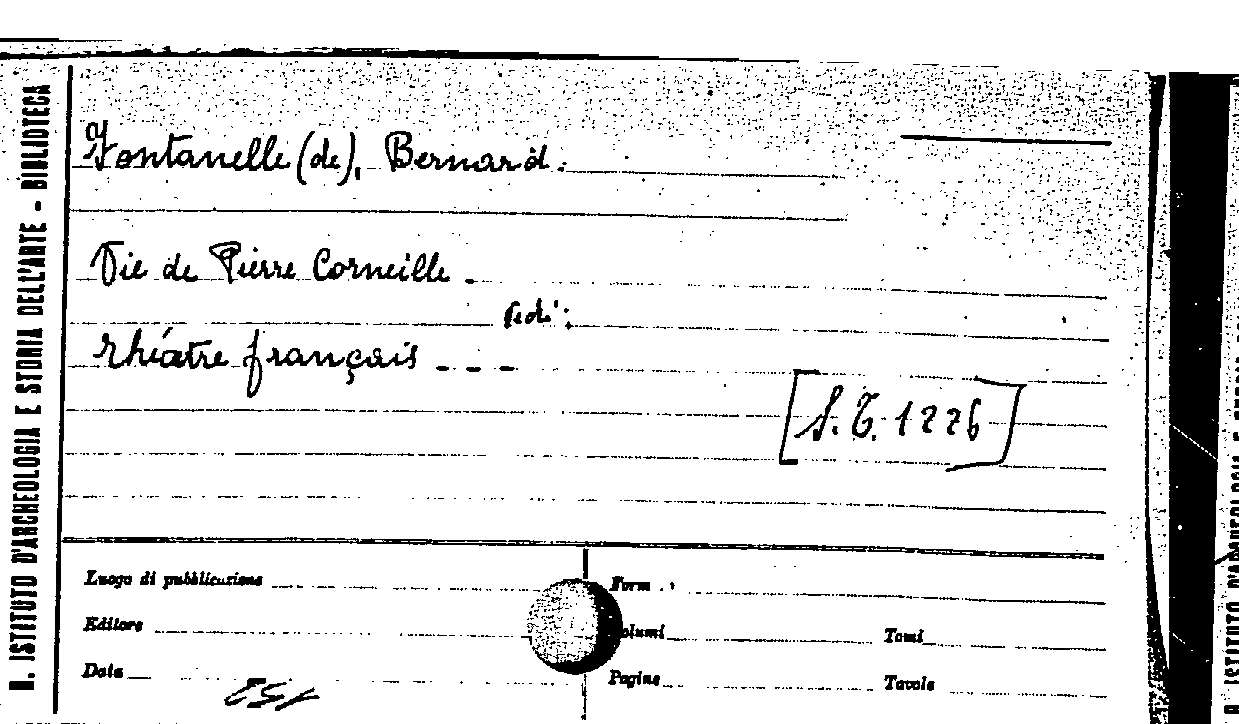 R. ISTITUTO D'ARCHEOLOGIA E STORIA DELL'ARTE - BIBLIOTECA
Fontanelle (de), Bernard.
Vie de Pierre Corneille.
Vedi:
Théatre français - - -
[S. T. 1226]
Luogo di pubblicazione
Form
Editore
olumi
Tomi
Data
Pagine
Tavole